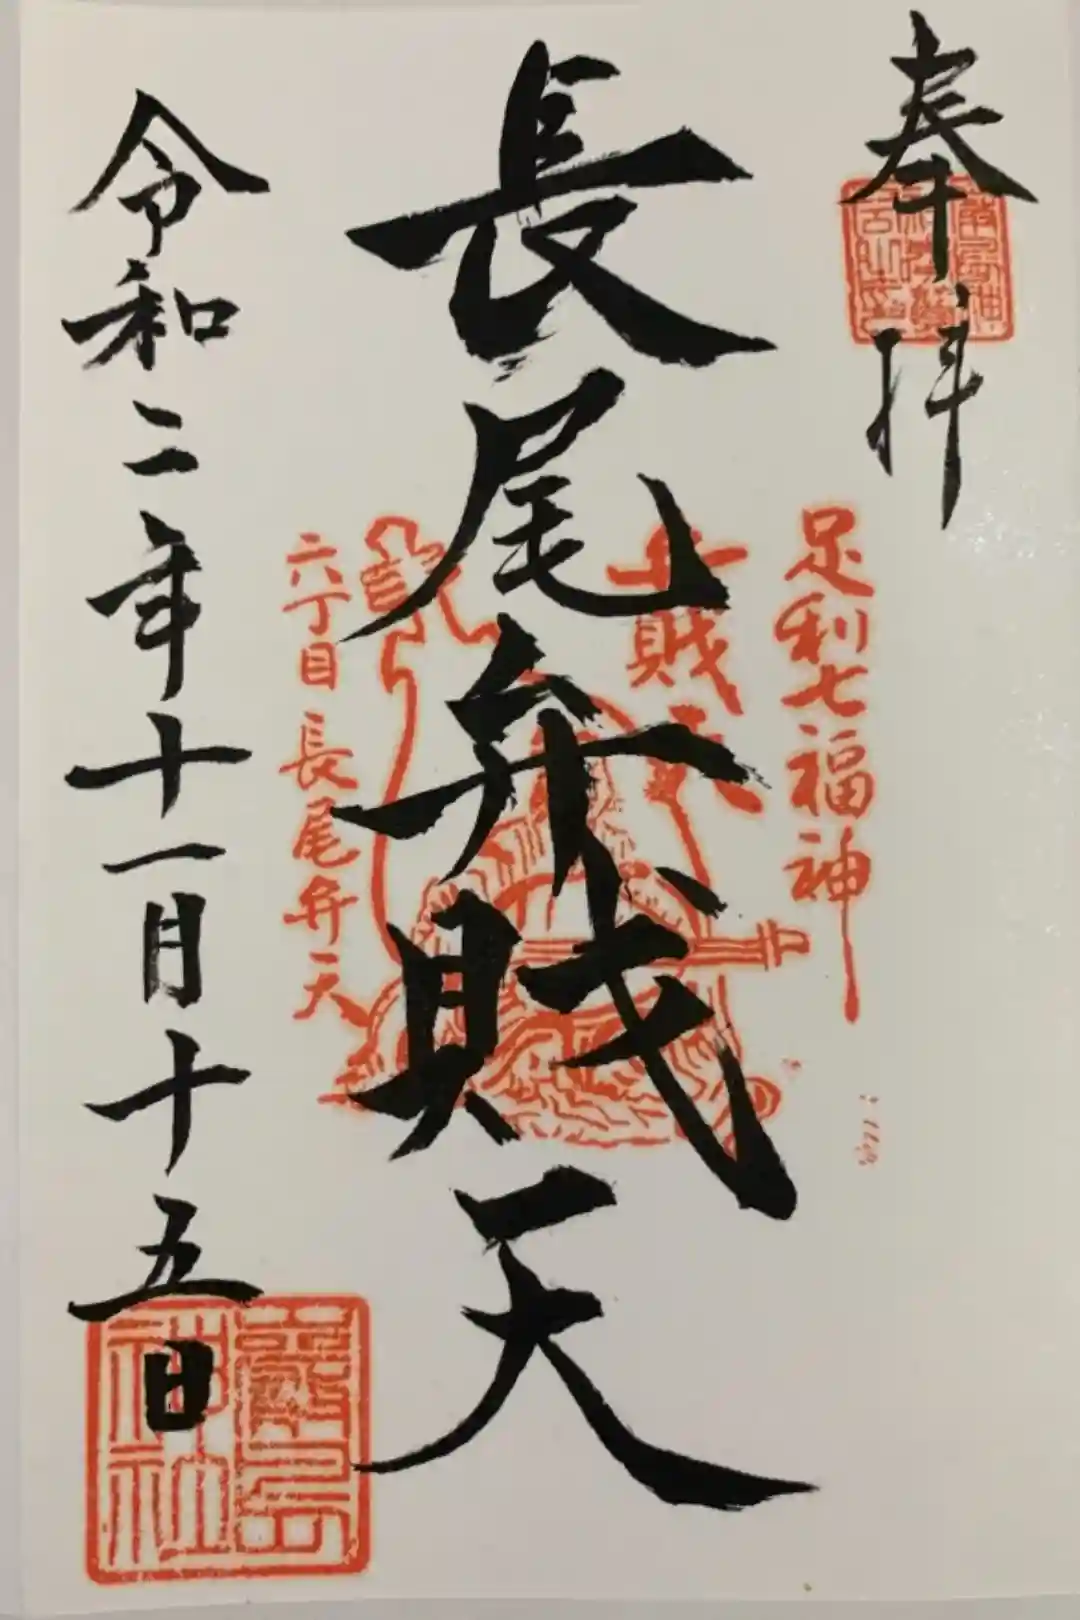 奉拝
足利七福神
弁財天
長尾弁財天
六丁目 長尾弁天
令和二年十一月十五日
神社